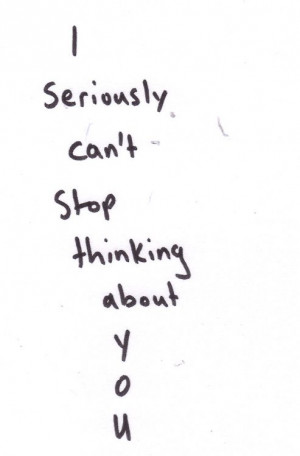 I
Seriously
can't
Stop
thinking
about
y
o
u